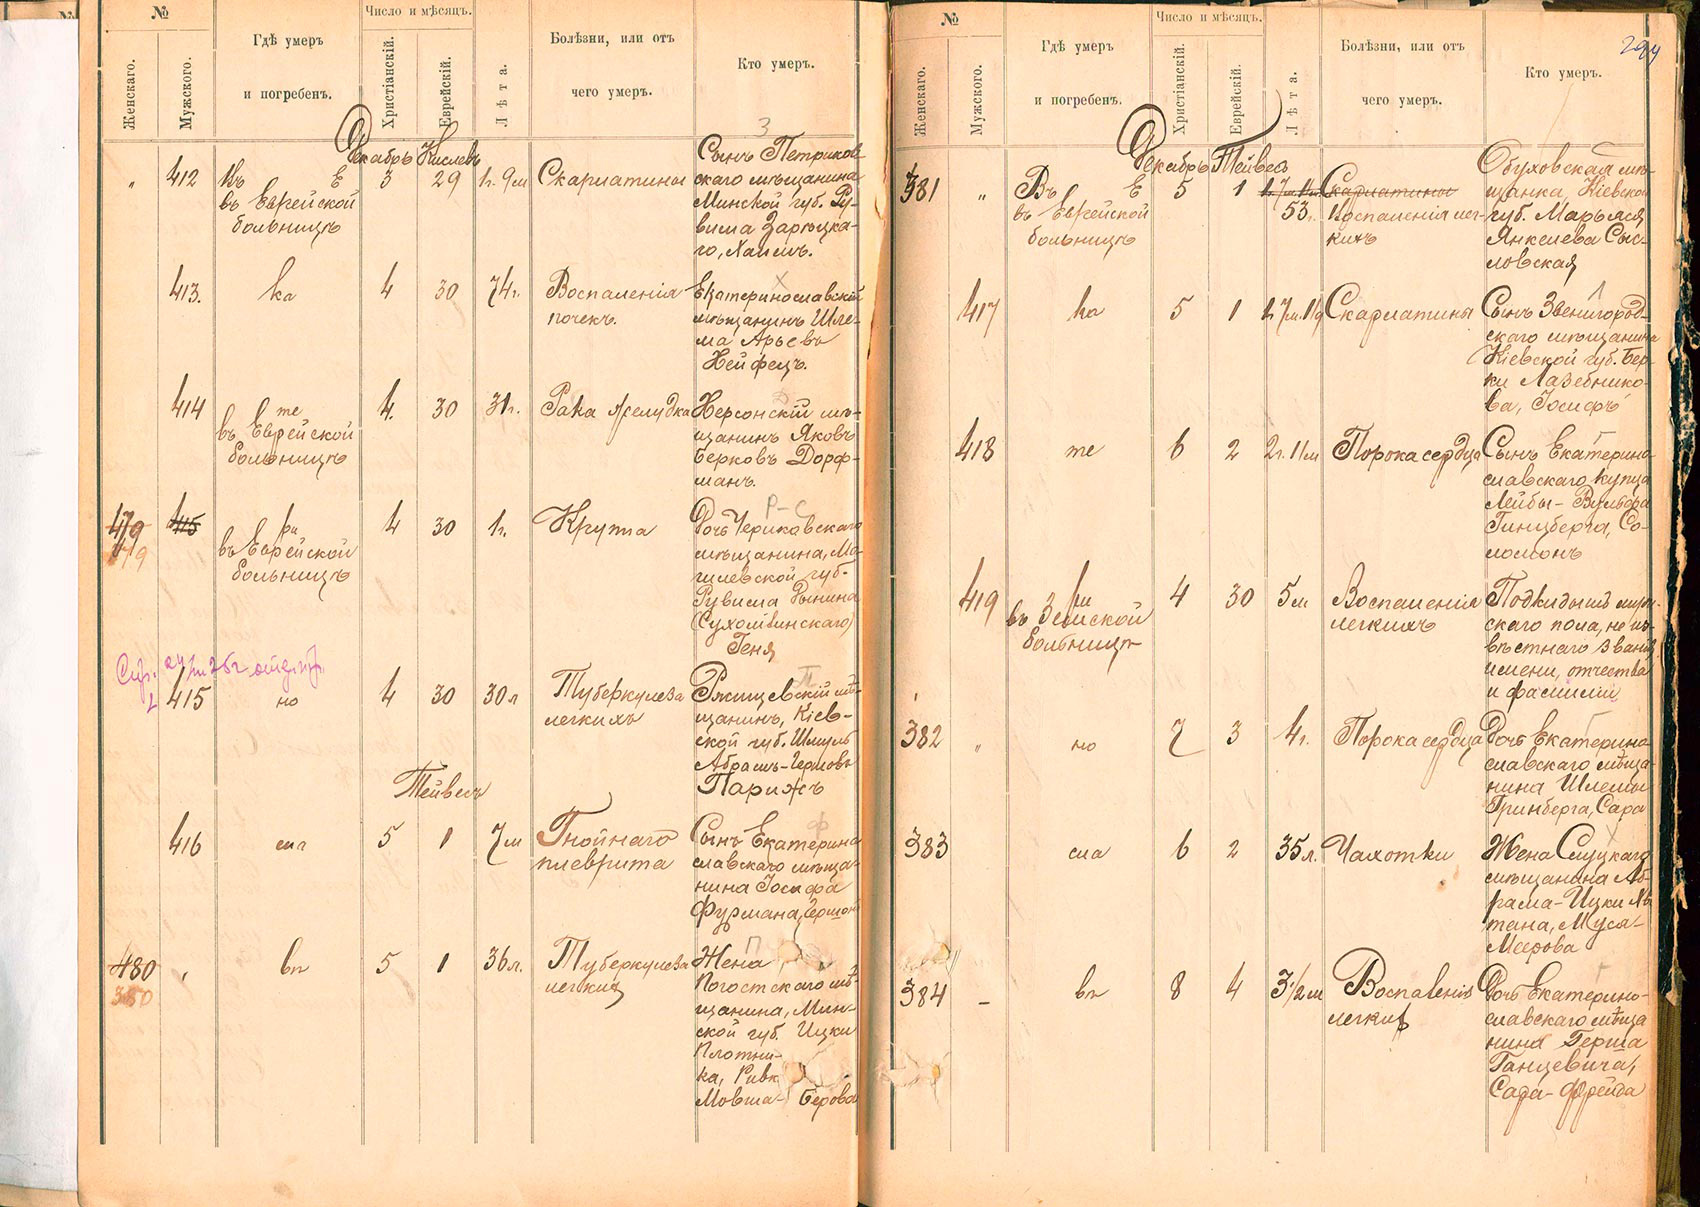 №
Число и мѣсяцъ.
Женскаго.
Мужскаго.
Гдѣ умеръ
и погребенъ.
Христіанскій.
Еврейскій.
Лѣта.
Болѣзни, или отъ
чего умеръ.
Кто умеръ.
3
Декабрь Кислевъ
„ 412
въ Еврейской
больницѣ
3 29 1г. 9м Скарлатины
Сынъ Петриков
скаго мѣщанина
Минской губ. Ру-
вима Зарѣцка-
го, Хаимъ.
413. ка 4 30 74г. Воспаленія
почекъ.
Екатеринославскій
мѣщанинъ Шле-
ма Арьевъ
Хейфецъ.
414 те
въ Еврейской
больницѣ
4. 30 31г. Рака желудка
Херсонскій мѣ-
щанинъ Яковъ
Берковъ Дорф-
манъ.
479 415
379
ри
въ Еврейской
больницѣ
4 30 1г. Крупа
Р-С
Дочь Чериковскаго
мѣщанина, Мо-
гилевской губ.
Рувима Рынина
(Сухотинскаго)
Геня
415 но 4 30 30л Туберкулеза
легкихъ
Ржищевскій мѣ-
щанинъ, Кіев-
ской губ. Шмуль
Абрамъ-Герщовъ
Парижъ
Тейвесъ
416 сла 5 1 7м Гнойнаго
плеврита
Ф
Сынъ Екатерино
славскаго мѣща-
нина Іосифа
Фурмана, Гершонъ
480
380
вл 5 1 36л. Туберкулеза
легких
П
Жена
Погостскаго мѣ-
щанина, Мин-
ской губ. Ицки
Плотни-
ка, Ривк
Мовша- Берова
294
№
Число и мѣсяцъ.
Женскаго.
Мужскаго.
Гдѣ умеръ
и погребенъ.
Христіанскій.
Еврейскій.
Лѣта.
Болѣзни, или отъ
чего умеръ.
Кто умеръ.
Декабрь Тейвесъ
381 „ Въ Е
въ Еврейской
больницѣ
5 1 53г. Скарлатины
Воспаленія лег-
кихъ
Обуховская мѣ-
щанка, Кіевской
губ. Марьяся
Янкелева Сыс-
ловская
417 ка 5 1 Скарлатины
Сынъ Звенигород-
скаго мѣщанина
Кіевской губ. Бер-
ки Лазебнико-
ва, Іосифъ
418 те 6 2 2г. 11м Порока сердца
Сынъ Екатерино
славскаго купца
Лейбы-Вульфа
Гинцберга, Со-
ломонъ
419 ри
въ Земской
больницѣ
4 30 5м Воспаленія
легкихъ
Подкидышъ муж-
скаго пола, не из-
вѣстнаго званія
имени, отчества
и фамиліи
382 „ но 7 3 4г. Порока сердца
Дочь Екатерино
славскаго мѣща-
нина Шлемы
Гринберга, Сара
383 сла 6 2 35л. Чахотки
Жена Слуцкаго
мѣщанина Аб-
рама-Ицки На
тана, Муся-
Меерова
384 – вл 8 4 3½м Воспаленія
легких
Дочь Екатерино-
славскаго мѣща
нина Герша
Ганцевича,
Сара-Фрейда